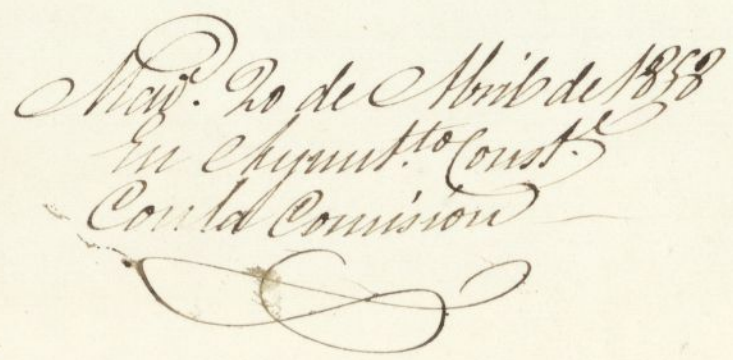 Mad.d 20 de Abril de 1858
En Ayunt.to Const.l
Con la Comision